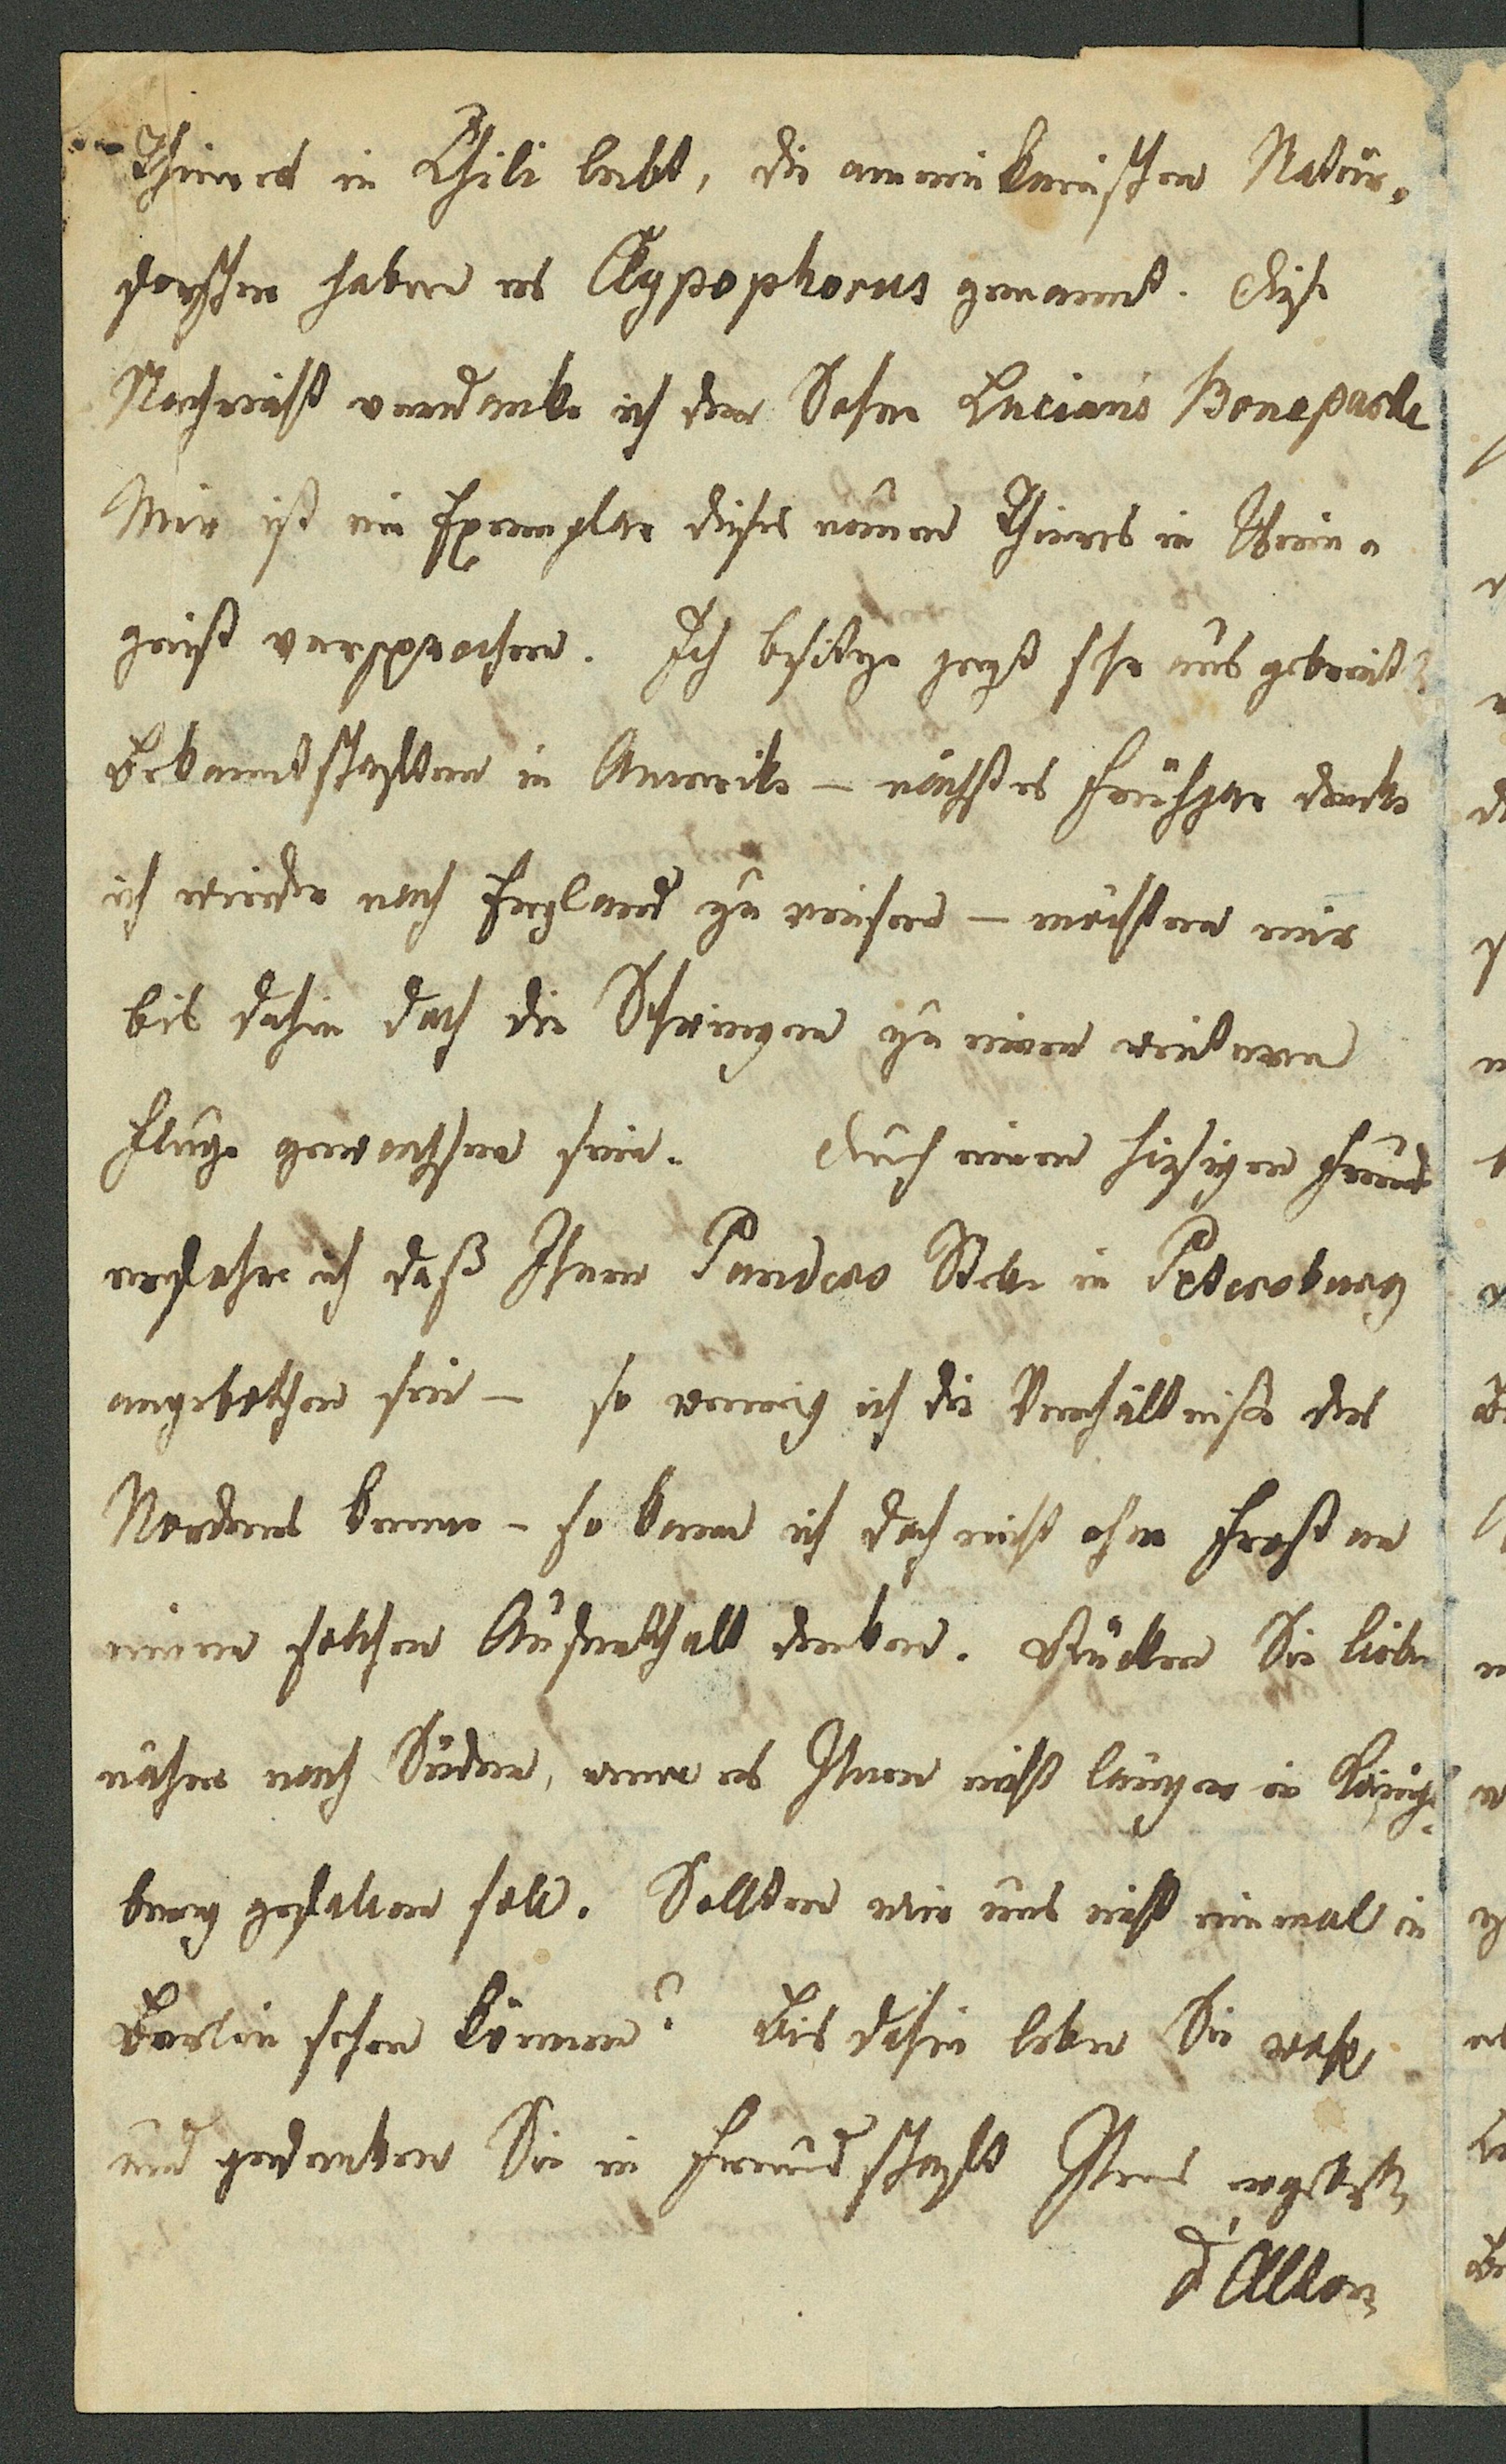 Thieres in Chili lebt, die amerikanischen Natur-
forscher haben es Clypophorus genannt. Diese
Nachricht verdanke ich dem Sohne Lucian's Bonaparte
Mir ist ein Exemplar dieses neuen Thieres in Wein-
geist versprochen. Ich besitze jezt sehr ausgebreitete
Bekanntschaften in Amerika – nächstes Frühjar denke
ich wieder nach England zu reisen – möchten mir
bis dahin doch die Schwingen zu einem weiteren
Fluge gewachsen sein. Durch einen hiesigen Freund
erfahre ich daß Ihnen Panders Stelle in Petersburg
angebothen sei – so wenig ich die Verhältniße des
Nordens kenne – so kann ich doch nicht ohne Frost an
einen solchen Aufenthalt denken. Rücken Sie lieber
näher nach Süden, wenn es Ihnen nicht länger in Königs-
berg gefallen soll. Sollten wir uns nicht einmal in
Berlin sehen können? Bis dahin leben Sie wohl
und gedenken Sie in Freundschaft Ihres ergebenst
d'Alton